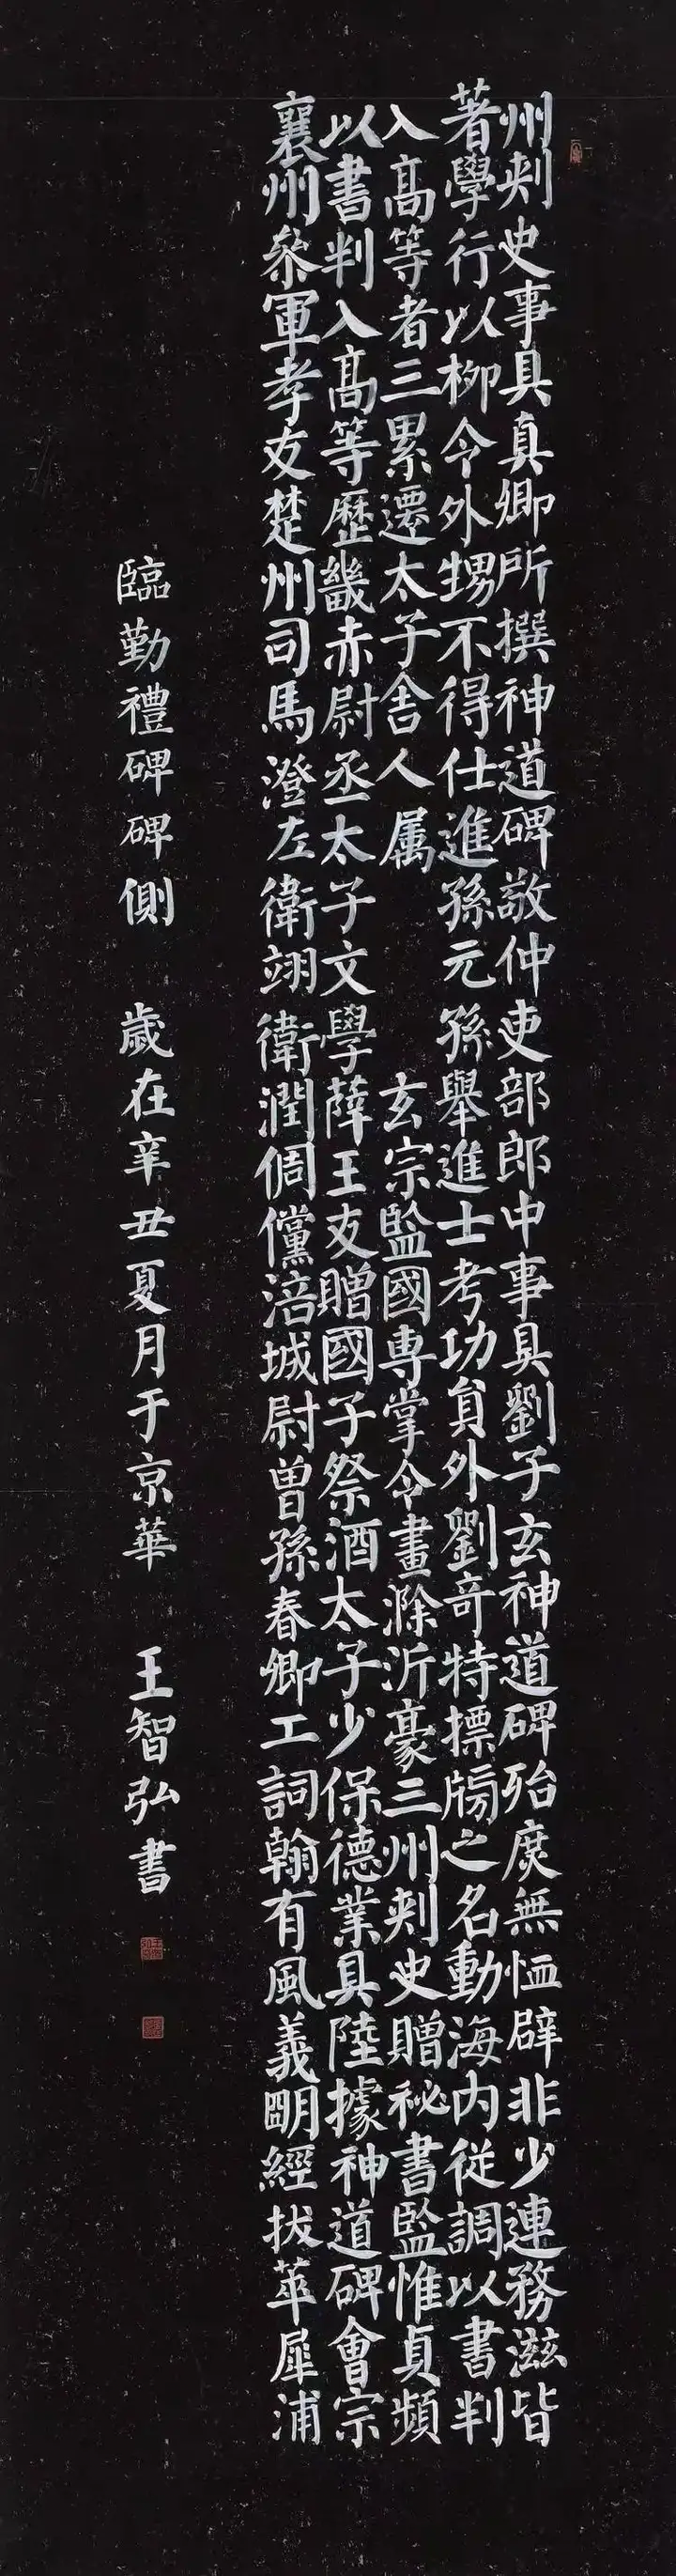 州刾史事具真卿所撰神道碑敬仲吏部郎中事具劉子玄神道碑殆庻無恤辟非少連務滋皆
著學行以柳令外甥不得仕進孫元孫舉進士考功貟外劉奇特摽牓之名動海内從調以書判
入髙等者三累遷太子舍人属 玄宗監國專掌令畫滁沂豪三州刾史贈秘書監惟貞頻
以書判入髙等歷畿赤尉丞太子文學薛王友贈國子祭酒太子少保德業具陸據神道碑會宗
襄州叅軍孝友楚州司馬澄左衛翊衛潤倜儻涪城尉曽孫春卿工詞翰有風義明經拔萃犀浦
臨勤禮碑碑側 歲在辛丑夏月于京華 王智弘書